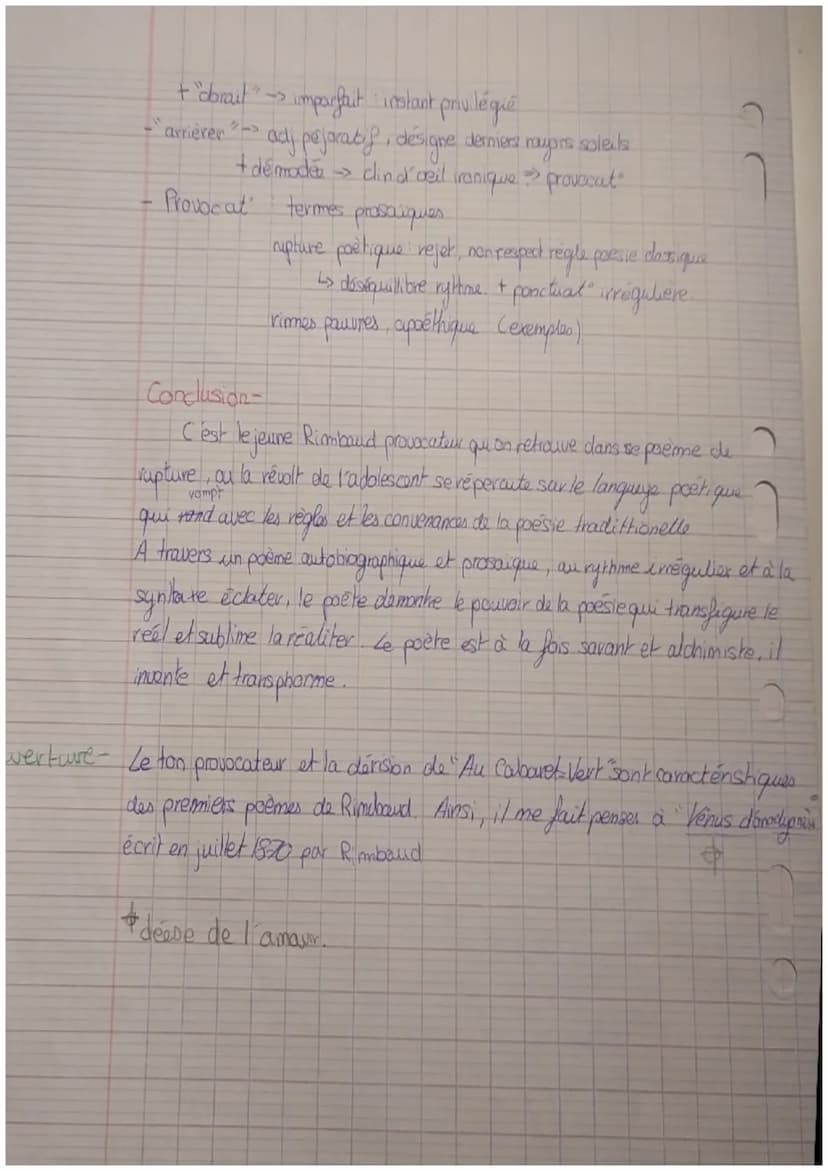 + "dorait" -> imparfait : instant privilégié
- "arriérer" -> adj péjoratif, désigne derniers rayons soleils
+ démodée -> clin d'oeil ironique => provocat°
- Provocat° : termes prosaïques
rupture poétique : rejet, non respect règle poésie classique
↳ déséquillibre rythme + ponctuat° irrégulière
rimes pauvres, apoéthique (exemples)
Conclusion-
C'est le jeune Rimbaud provocateur qu'on retrouve dans se poème de
rupture, ou la révolt de l'adolescent se répercute sur le languge poétique
rompt
qui rond avec les règles et les convenances de la poésie tradithionelle
A travers un poème autobiographique et prosaïque, au rythme irrégulier et à la
syntaxe éclater, le poète démontre le pouvoir de la poésie qui transfigure le
réel et sublime la réaliter. Le poète est à la fois savant et alchimiste, il
invente et transphorme.
verture- Le ton provocateur et la dérision de "Au Cabaret-Vert" sont caractéristiques
des premiers poèmes de Rimbaud. Ainsi, il me fait penser à "Vénus d'anadyomène"
écrit en juillet 1870 par Rimbaud
déesse de l'amour.